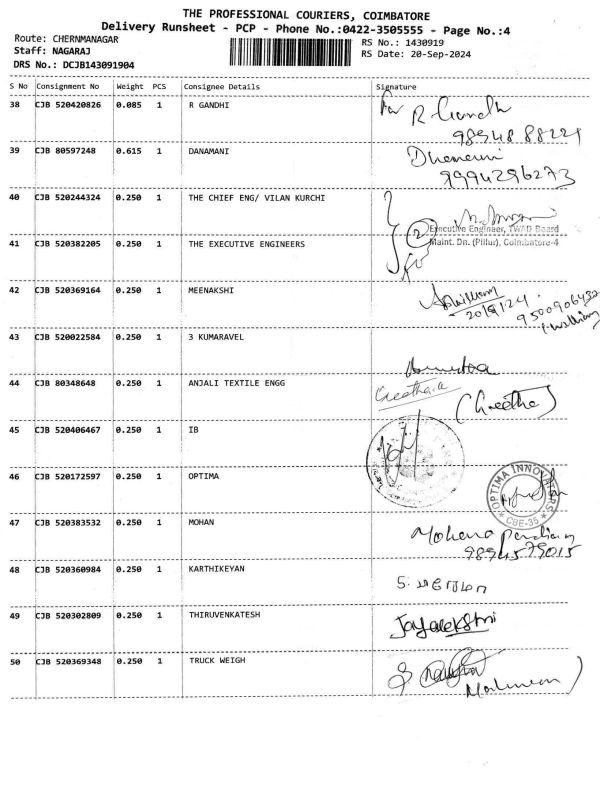 THE PROFESSIONAL COURIERS, COIMBATORE
Delivery Runsheet - PCP - Phone No.:0422-3505555 - Page No.:4
Route: CHERNMANAGAR
RS No.: 1430919
Staff: NAGARAJ
RS Date: 20-Sep-2024
DRS No.: DCJB143091904
S No Consignment No Weight PCS Consignee Details Signature
38 CJB 520420826 0.085 1 R GANDHI
for R Gandhi
39 CJB 80597248 0.615 1 DANAMANI
9994296273
40 CJB 520244324 0.250 1 THE CHIEF ENG/ VILAN KURCHI
2 Executive Engineer, TWAD Board
41 CJB 520382205 0.250 1 THE EXECUTIVE ENGINEERS
Maint. Dn. (Pillur), Coimbatore-4
42 CJB 520369164 0.250 1 MEENAKSHI
9500906432
43 CJB 520022584 0.250 1 3 KUMARAVEL
44 CJB 80348648 0.250 1 ANJALI TEXTILE ENGG
(Geetha)
45 CJB 520406467 0.250 1 IB
46 CJB 520172597 0.250 1 OPTIMA
OPTIMA INNOVATORS
CBE-35
47 CJB 520383532 0.250 1 MOHAN
9894579015
48 CJB 520360984 0.250 1 KARTHIKEYAN
49 CJB 520302809 0.250 1 THIRUVENKATESH
Jayalekshmi
50 CJB 520369348 0.250 1 TRUCK WEIGH